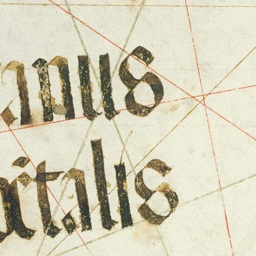 anus
ẽtalis